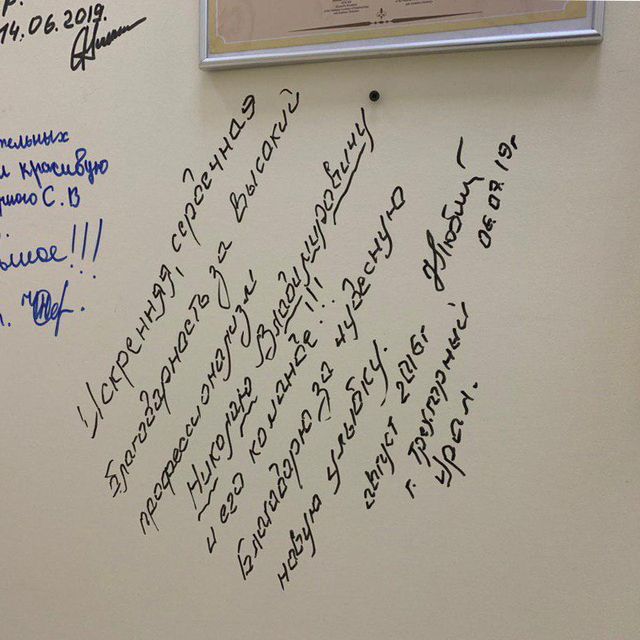 14.06.2019.
тельных
и красивую
С.В
!!!
Искренняя, сердечная
благодарность за высокий
профессионализм
Николаю Владимировичу
и его команде!!!
Благодарю за чудесную
новую улыбку.
август 2016г
г. Трехгорный
Урал.
06.07.19г